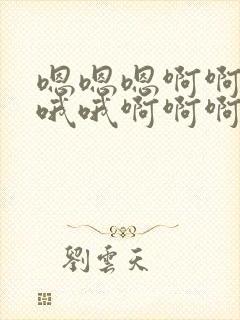 嗯嗯嗯啊啊
哦哦啊啊啊
劉雲天